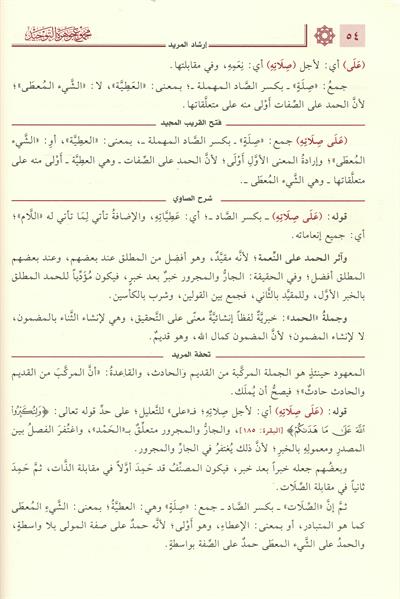 ٥٤
إرشاد المريد
مجموع جوهرة التوحيد
(عَلَى) أي: لأجل (صِلَاتِهِ) أي: نِعَمِهِ، وفي مقابلتها.
جمعُ: «صِلَةٍ» ـ بكسر الصَّاد المهملة ـ؛ بمعنى: «العَطِيَّة»، لا: «الشَّيء المُعطَى»؛
لأنَّ الحمد على الصِّفات أَوْلى منه على متعلَّقاتها.
فتح القريب المجيد
(عَلَى صِلَاتِهِ) جمع: «صِلَةٍ» ـ بكسر الصَّاد المهملة ـ، بمعنى: «العطيَّة»، أوِ: «الشَّيء
المُعطَى»؛ وإرادةُ المعنى الأوَّلِ أَوْلَى؛ لأنَّ الحمد على الصِّفات ـ وهي العطيَّة ـ أَوْلى منه على
متعلَّقاتها ـ وهي الشَّيء المُعطَى ـ.
شرح الصاوي
قوله: (عَلَى صِلَاتِهِ) ـ بكسر الصَّاد ـ؛ أي: عَطِيَّاتِهِ، والإضافةُ تأتي لِمَا تأتي له «اللَّام»؛
أي: جميع إنعاماته.
وآثر الحمد على النِّعمة؛ لأنَّه مقيَّدٌ، وهو أفضل من المطلق عند بعضهم، وعند بعضهم
المطلق أفضل؛ وفي الحقيقة: الجارُّ والمجرور خبرٌ بعد خبرٍ، فيكون مُؤَدِّياً للحمد المطلق
بالخبر الأوَّل، وللمقيَّد بالثَّاني، فجمع بين القولين، وشرب بالكأسين.
وجملةُ «الحمد»: خبريَّةٌ لفظاً إنشائيَّةٌ معنًى على التَّحقيق، وهي لإنشاء الثَّناء بالمضمون،
لا لإنشاء المضمون؛ لأنَّ المضمون كمال الله، وهو قديمٌ.
تحفة المريد
المعهود حينئذٍ هو الجملة المركَّبة من القديم والحادث، والقاعدةُ: «أنَّ المركَّبَ من القديم
والحادث حادثٌ»؛ فيصحُّ أن يُملَك.
قوله: (عَلَى صِلَاتِهِ) أي: لأجل صِلاتِهِ؛ فـ«على» للتَّعليل؛ على حدِّ قوله تعالى: ﴿وَلِتُكَبِّرُواْ
ٱللَّهَ عَلَىٰ مَا هَدَىٰكُمْ﴾ [البقرة: ١٨٥]، والجار والمجرور متعلِّقٌ بـ«الحَمْد»، واغتُفرَ الفصلُ بين
المصدرِ ومعمولِهِ بالخبرِ؛ لأنَّ ذلك يُغتفرُ في الجارِّ والمجرور.
وبعضُهم جعله خبراً بعد خبرٍ، فيكون المصنِّفُ قد حَمِدَ أوَّلاً في مقابلة الذَّات، ثمَّ حَمِدَ
ثانياً في مقابلة الصِّلَات.
ثمَّ إنَّ «الصِّلَات» ـ بكسر الصَّاد ـ جمع: «صِلَةٍ» وهي: العطيَّةُ؛ بمعنى: الشَّيءِ المُعطَى
كما هو المتبادر، أو بمعنى: الإعطاءِ، وهو أَوْلى؛ لأنَّه حمدٌ على صفة المولى بلا واسطةٍ،
والحمدُ على الشَّيء المعطَى حمدٌ على الصِّفة بواسطةٍ.